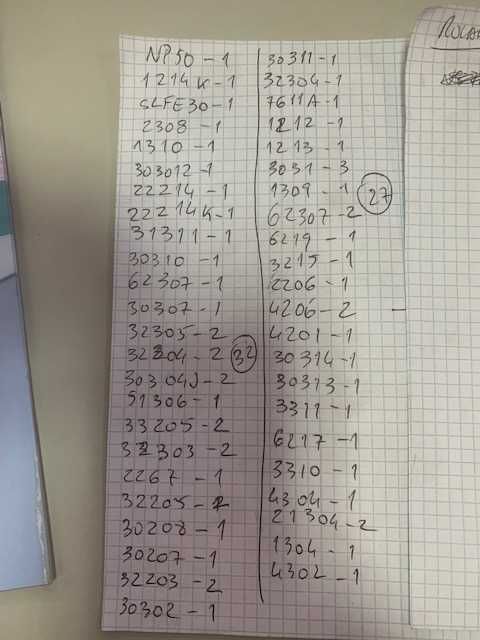 NP50 - 1
1214K - 1
SLFE30 - 1
2308 - 1
1310 - 1
303012 - 1
22214 - 1
22214K - 1
31311 - 1
30310 - 1
62307 - 1
30307 - 1
32305 - 2
32304 - 2
32
30304J - 2
51306 - 1
33205 - 2
32303 - 2
2267 - 1
32205 - 2
30208 - 1
30207 - 1
32203 - 2
30302 - 1
30311 - 1
32304 - 1
7611A - 1
1212 - 1
1213 - 1
3031 - 3
1309 - 1
27
62307 - 2
6219 - 1
3215 - 1
2206 - 1
4206 - 2
4201 - 1
30314 - 1
30313 - 1
3311 - 1
6217 - 1
3310 - 1
4304 - 1
21304 - 2
1304 - 1
4302 - 1